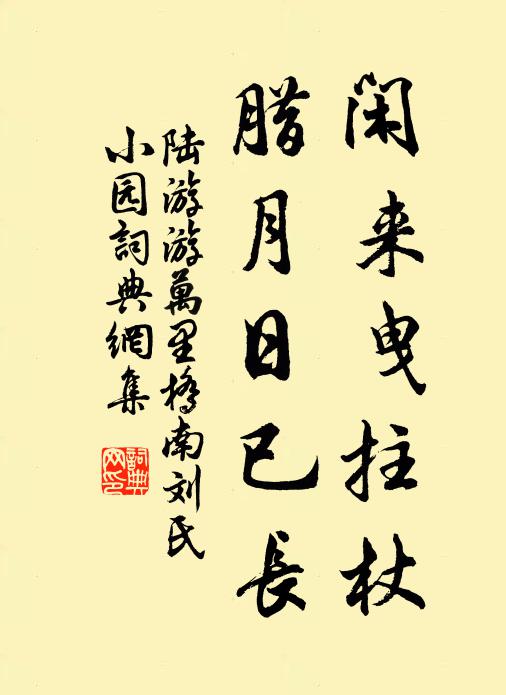 闲来曳拄杖
腊月日已長
陆游游萬里橋南刘氏
小园詞典網集
詞典
网印